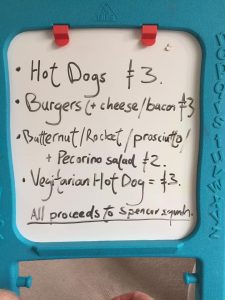 • Hot Dogs £3.
• Burgers (+ cheese/bacon £3
• Butternut/Rocket/prosciutto/
+ Pecorino salad £2.
• Vegitarian Hot Dog = £3.
All proceeds to Spencer